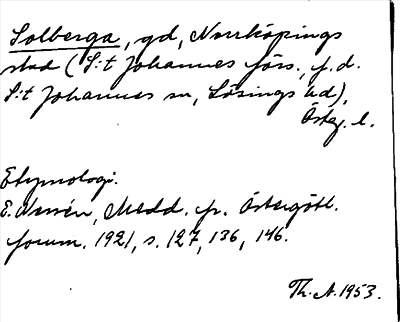 Solberga, gd, Norrköpings
stad (S:t Johannes förs., f.d.
S:t Johannes sn, Lösings hd),
Östg. l.
Etymologi.
E. Nerrén, Medd. fr. Östergötl.
fornm. 1921, s. 127, 136, 146.
Th. A. 1953.